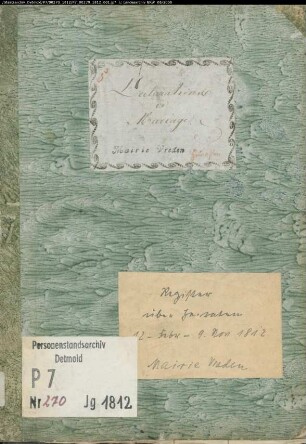 Publications
de
Mariages
Mairie Vreden
Register
über Heiraten
12. Febr - 9. Nov 1812
Mairie Vreden
Personenstandsarchiv
Detmold
P 7
Nr 270 Jg 1812